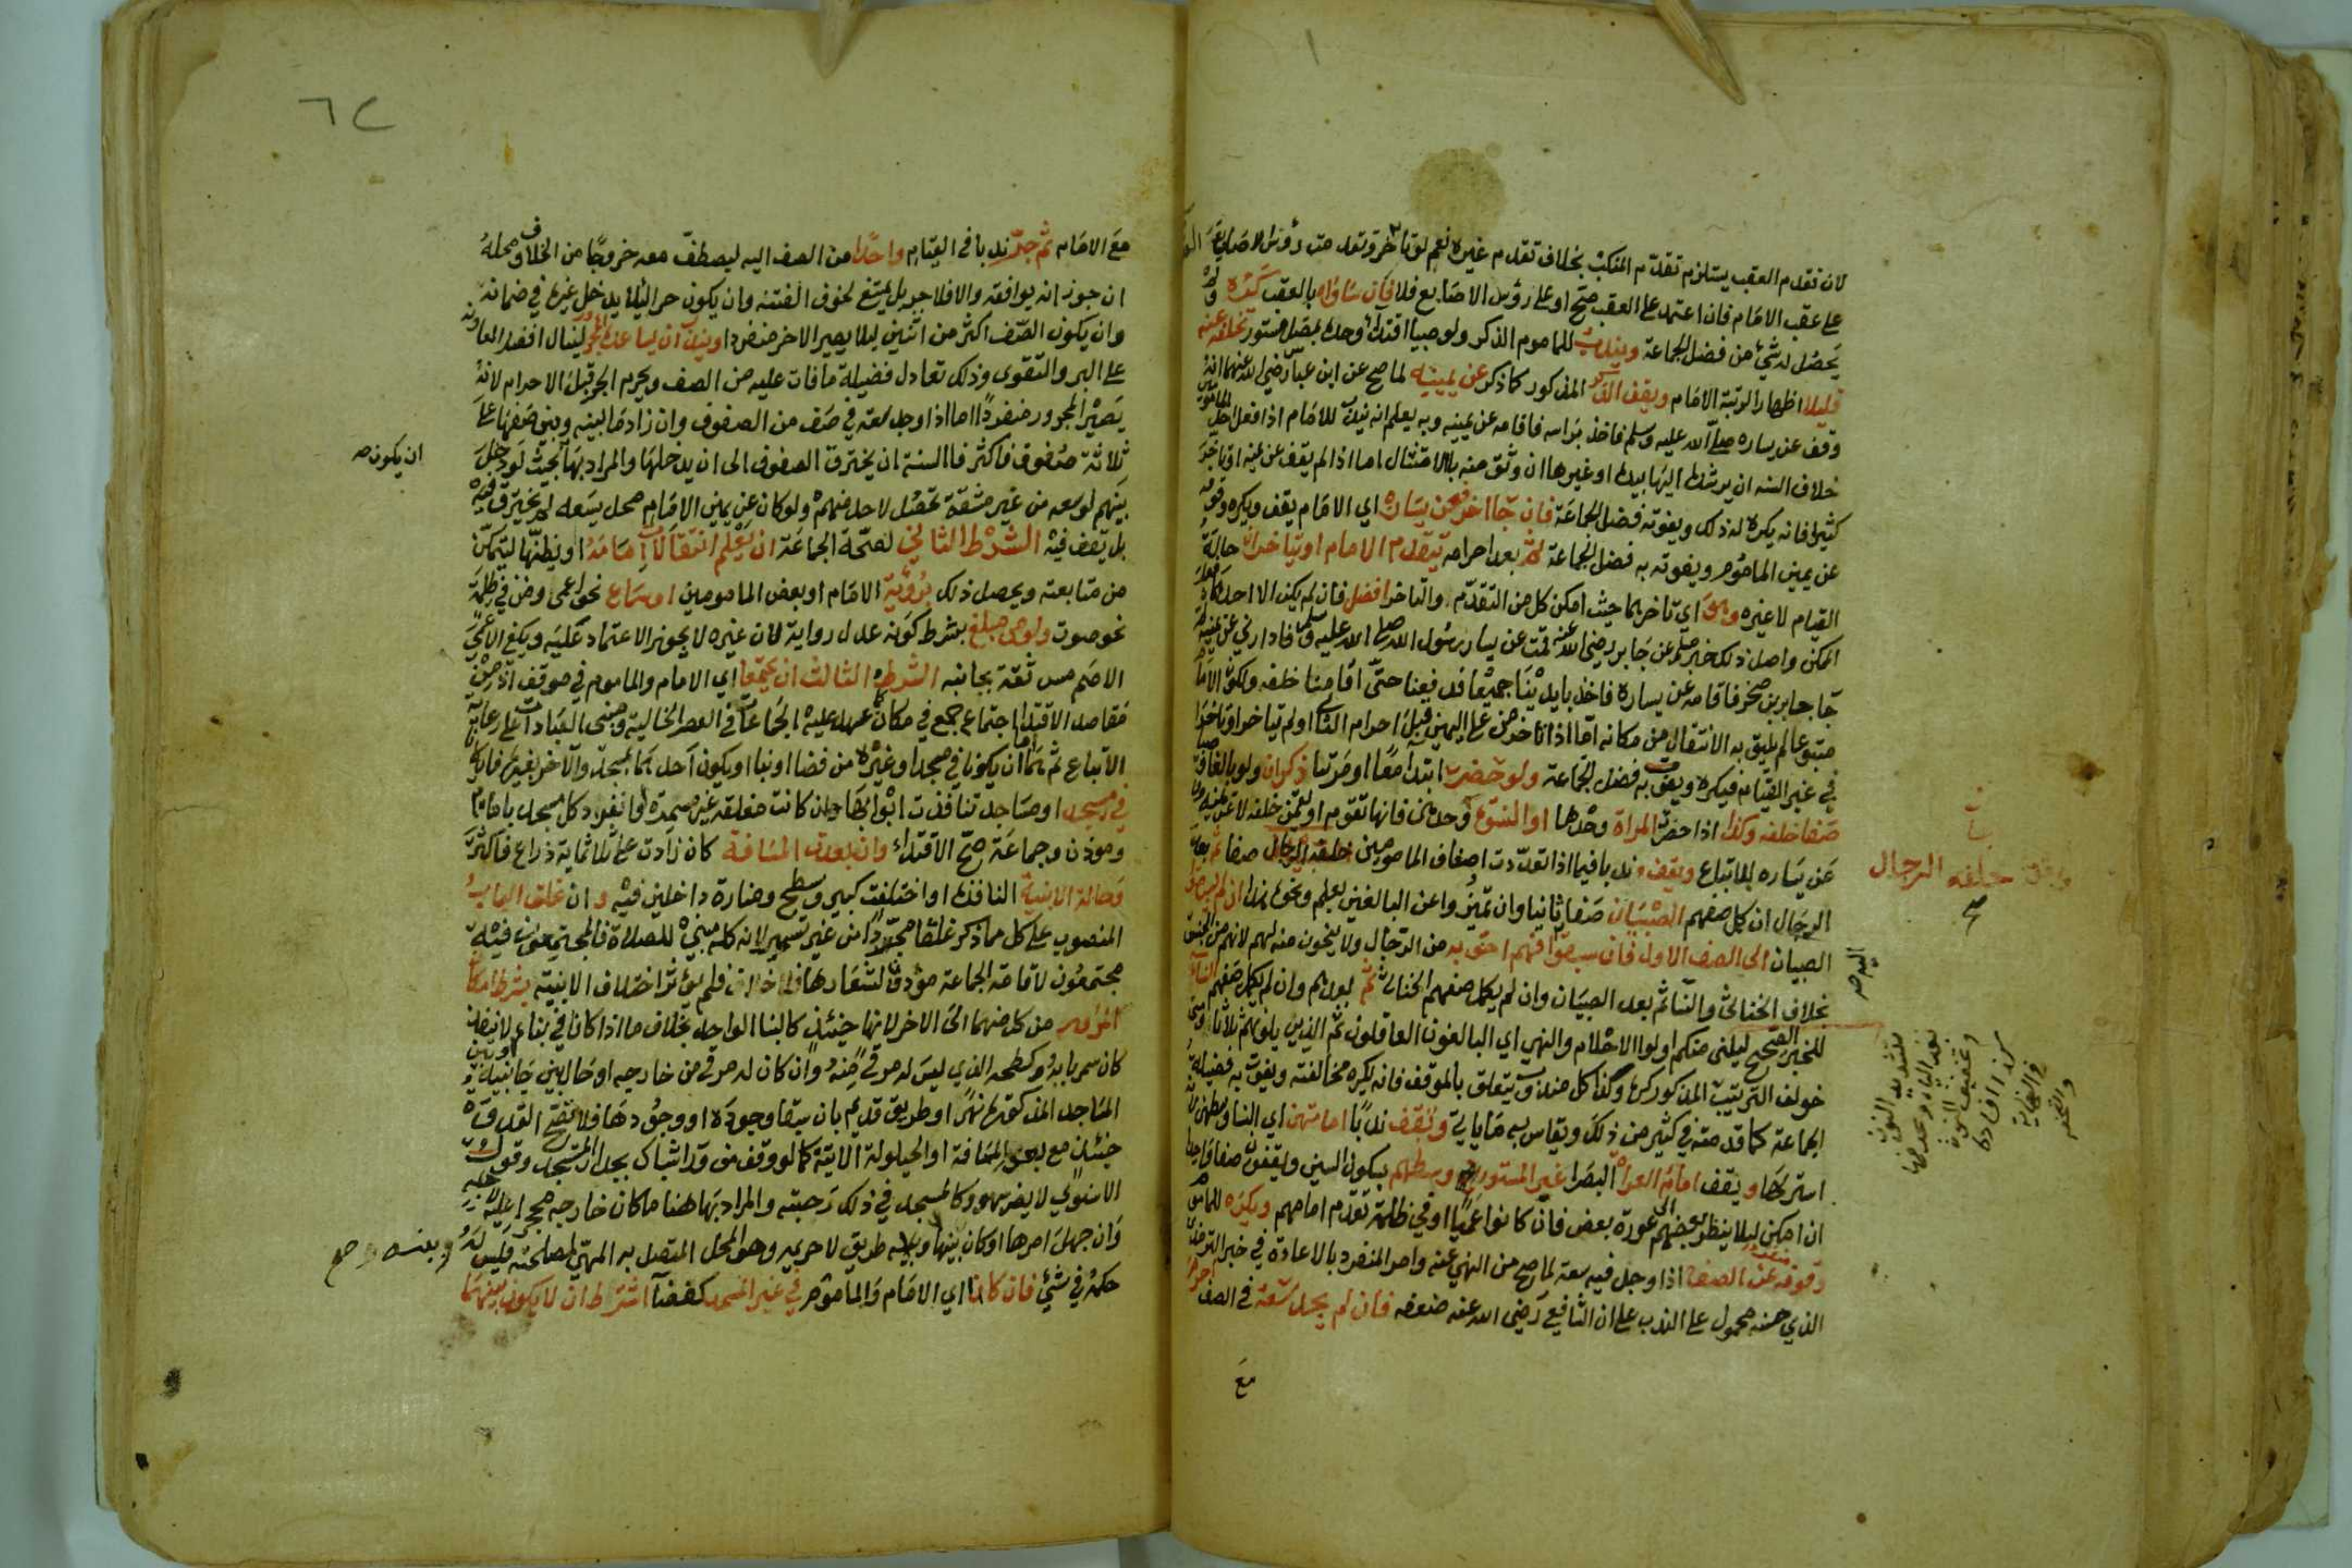 لان تقدم العقب يستلزم تقدم المنكب بخلاف تقدم غيره نعم لو تاخر وتقدمت رؤس الاصابع
على عقب الامام فان اعتمد على العقب صح او على رؤس الاصابع فلا فان ساواه بالعقب كره
يحصل له شي من فضل الجماعة ويندب للماموم الذكر ولو صبيا اقتدا وحده بمصل مستور تخلفه عنه
قليلا اظهارا لرتبة الامام ويقف الذكر المذكور كما ذكر عن يمينه لما صح عن ابن عباس رضي الله عنهما انه
وقف عن يساره صلى الله عليه وسلم فاخذ براسه فاقامه عن يمينه وبه يعلم انه يندب للامام اذا فعل احد المامومين
خلاف السنه ان يرشده اليها بيده او غيرها ان وثق منه بالامتثال اما اذا لم يقف عن يمينه او تاخر
كثيرا فانه يكره له ذلك ويفوته فضل الجماعة فان جا اخر فعن يساره اي الامام يقف ويكره وقوفه
عن يمين الماموم ويفوته به فضل الجماعة ثم بعد احرامه يتقدم الامام او يتاخران حالة
القيام لا غيره وهو اي تاخرهما حيث امكن كل من التقدم والتاخر افضل فان لم يكن الا احدهما فعل
الممكن واصل ذلك خبر مسلم عن جابر رضي الله عنه قمت عن يسار رسول الله صلى الله عليه وسلم فادارني عن يمينه ثم
جا جابر بن صخر فاقامه عن يساره فاخذ بايدينا جميعا فدفعنا حتى اقامنا خلفه ولكون الامام
متبوعا لم يليق به الانتقال من مكانه اما اذا تاخر من على اليمين قبل احرام الثاني او لم يتاخرا او تاخرا
في غير القيام فيكره ويفوت به فضل الجماعة ولو حضر ابتداً معًا او مرتبا ذكران ولو بالغا وصبيا
صفا خلفه وكذا اذا حضرت المراة وحدها او النسوة وحدهن فانها تقوم او يقمن خلفه لا عن يمينه ولا
عن يساره للاتباع ويقف ندبا فيما اذا تعددت اصناف المامومين خلفه الرجال صفا ثم بعد
الرجال ان كمل صفهم الصبيان صفا ثانيا وان تميزوا عن البالغين بعلم ونحوه هذا ان لم يسبق
الصبيان الى الصف الاول فان سبقوا فهم احق به من الرجال ولا ينحون منه لهم لانهم من الجنس
بخلاف الخناثى والنسا ثم بعد الصبيان وان لم يكمل صفهم الخناثى ثم بعدهم وان لم يكمل صفهم النسا
للخبر الصحيح ليلني منكم اولوا الاحلام والنهي اي البالغون العاقلون ثم الذين يلونهم ثلاثا ومتى
خولف الترتيب المذكور كره وكذا كل مندوب يتعلق بالموقف فانه يكره مخالفته ويفوت به فضيلة
الجماعة كما قدمته في كثير من ذلك ويقاس به ما ياتي وتقف ندبًا امامتهن اي النسا وسطهن لانه
استر لها ويقف امام العراة البصرا غير المستورين وسطهم بسكون السين ويقفون صفا واحدا
ان امكن ليلا ينظر بعضهم الى عورة بعض فان كانوا عميًا او في ظلمة تقدم امامهم ويكره للماموم
وقوفه منفردا عن الصف اذا وجد فيه سعة لما صح من النهي عنه وامر المنفرد بالاعادة في خبر الترمذي
الذي حسنه محمول على الندب على ان الشافعي رضي الله عنه ضعفه فان لم يجد سعة في الصف احرم
مع
خلفه الرجال
صح
اليه صح
بتشديد النون
بعد الياء وبحذفها
وتخفيف النون
٦٢
مع الامام ثم جر ندبا في القيام واحدًا من الصف اليه ليصطف معه خروجًا من الخلاف ومحله
ان جوز انه يوافقه والا فلا جر بل يمتنع لخوف الفتنه وان يكون حرا ليلا يدخل غيره في ضمانه
وان يكون الصف اكثر من اثنين ليلا يصير الاخر منفردا ويندب ان يساعده المجرور لينال افضل المعاونه
على البر والتقوى وذلك تعادل فضيلة ما فات عليه من الصف ويحرم الجر قبل الاحرام لانه
يصير المجرور منفردًا اما اذا وجد سعة في صف من الصفوف وان زاد ما بينه وبين صفها على
ثلاثة صفوف فاكثر فالسنة ان يخترق الصفوف الى ان يدخلها والمراد بها بحيث لو دخل
ان يكون صح
بينهم لوسعه من غير مشقة تحصل لاحد منهم ولو كان عن يمين الامام محل يسعه لم يخترق فيه
بل يقف فيه الشرط الثاني لصحة الجماعة ان يعلم انتقالات امامه او يظنها ليتمكن
من متابعته ويحصل ذلك برؤية الامام او بعض المامومين او سماع نحو اعمى ومن في ظلمة
نحو صوت ولو من مبلغ بشرط كونه عدل رواية لان غيره لا يجوز الاعتماد عليه ويكفي الاعمى
الاصم مس ثقة بجانبه الشرط الثالث ان يجتمعا اي الامام والماموم في موقف اذ من
مقاصد الاقتدا اجتماع جمع في مكان كما عهد عليه الجماعات في العصر الخالية ومبنى العبادات على رعاية
الاتباع ثم هما اما ان يكونا في مسجد او غيره من فضا او بنا او يكون احدهما بمسجد والاخر بغيره فان كانا
في مسجد او مساجد تنافذت ابوابها وان كانت مغلقة غير مسمرة او انفرد كل مسجد بامام
وموذن وجماعة صح الاقتداء وان بعدت المسافة كان زادت على ثلاثماية ذراع فاكثر
وحالة الابنية النافذة او اختلفت كبير وسطح ومنارة داخلين فيه وان غلق الباب
المنصوب على كل مما ذكر غلقا مجردًا من غير تسمير لانه كله مبني للصلاة فالمجتمعون فيه
مجتمعون لاقامة الجماعة مؤدون لشعارها فلم يؤثر اختلاف الابنية بشرط امكان
المرور من كل منهما الى الاخر لانها حينئذ كالبنا الواحد بخلاف ما اذا كانا في بناء لا ينفذ
كان سمر بابه او كسطحه الذي ليس له مرقى منه وان كان له مرقى من خارجه او حال بين جانبيه او بين
المساجد المذكورة نهر او طريق قديم بان سبقا وجوده او وجودها فلا تصح القدوة
حينئذ مع بعد المسافة او الحيلولة الاتية كما لو وقف من ورا شباك بجدار المسجد وقول
الاسنوي لا يضر سهو وكالمسجد في ذلك رحبته والمراد بها هنا ما كان خارجه محجرا عليه لاجله
وان جهل امرها او كان بينها وبينه طريق لا حريمه وهو المحل المتصل به المهيئ لمصلحته فليس له
وبينه صح
حكمه في شئ فان كانا اي الامام والماموم في غير المسجد كفضا اشترط ان لا يكون بينهما